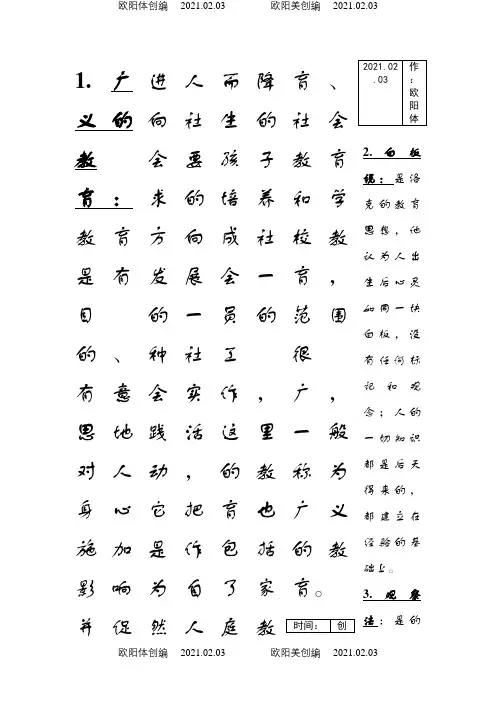 欧阳体创编 2021.02.03 欧阳美创编 2021.02.03
1. 广
义的
教
育：
教育
是有
目
的、
有意
思地
对人
身心
施加
影响
并促
进人
向社
会要
求的
方向
发展
的一
种社
会实
践活
动，
它把
是作
为自
然人
而降
生的
孩子
培养
成社
会一
员的
工
作，
这里
的教
育也
包括
了家
庭教
育、
社会
教育
和学
校教
育，
范围
很
广，
一般
称为
广义
的教
育。
时间： 创
2021.02.03 作：欧阳体
2. 白板
说：是洛
克的教育
思想，他
认为人出
生后心灵
如同一块
白板，没
有任何标
记和观
念；人的
一切知识
都是后天
得来的，
都建立在
经验的基
础上。
3. 观察
法：是的
欧阳体创编 2021.02.03 欧阳美创编 2021.02.03